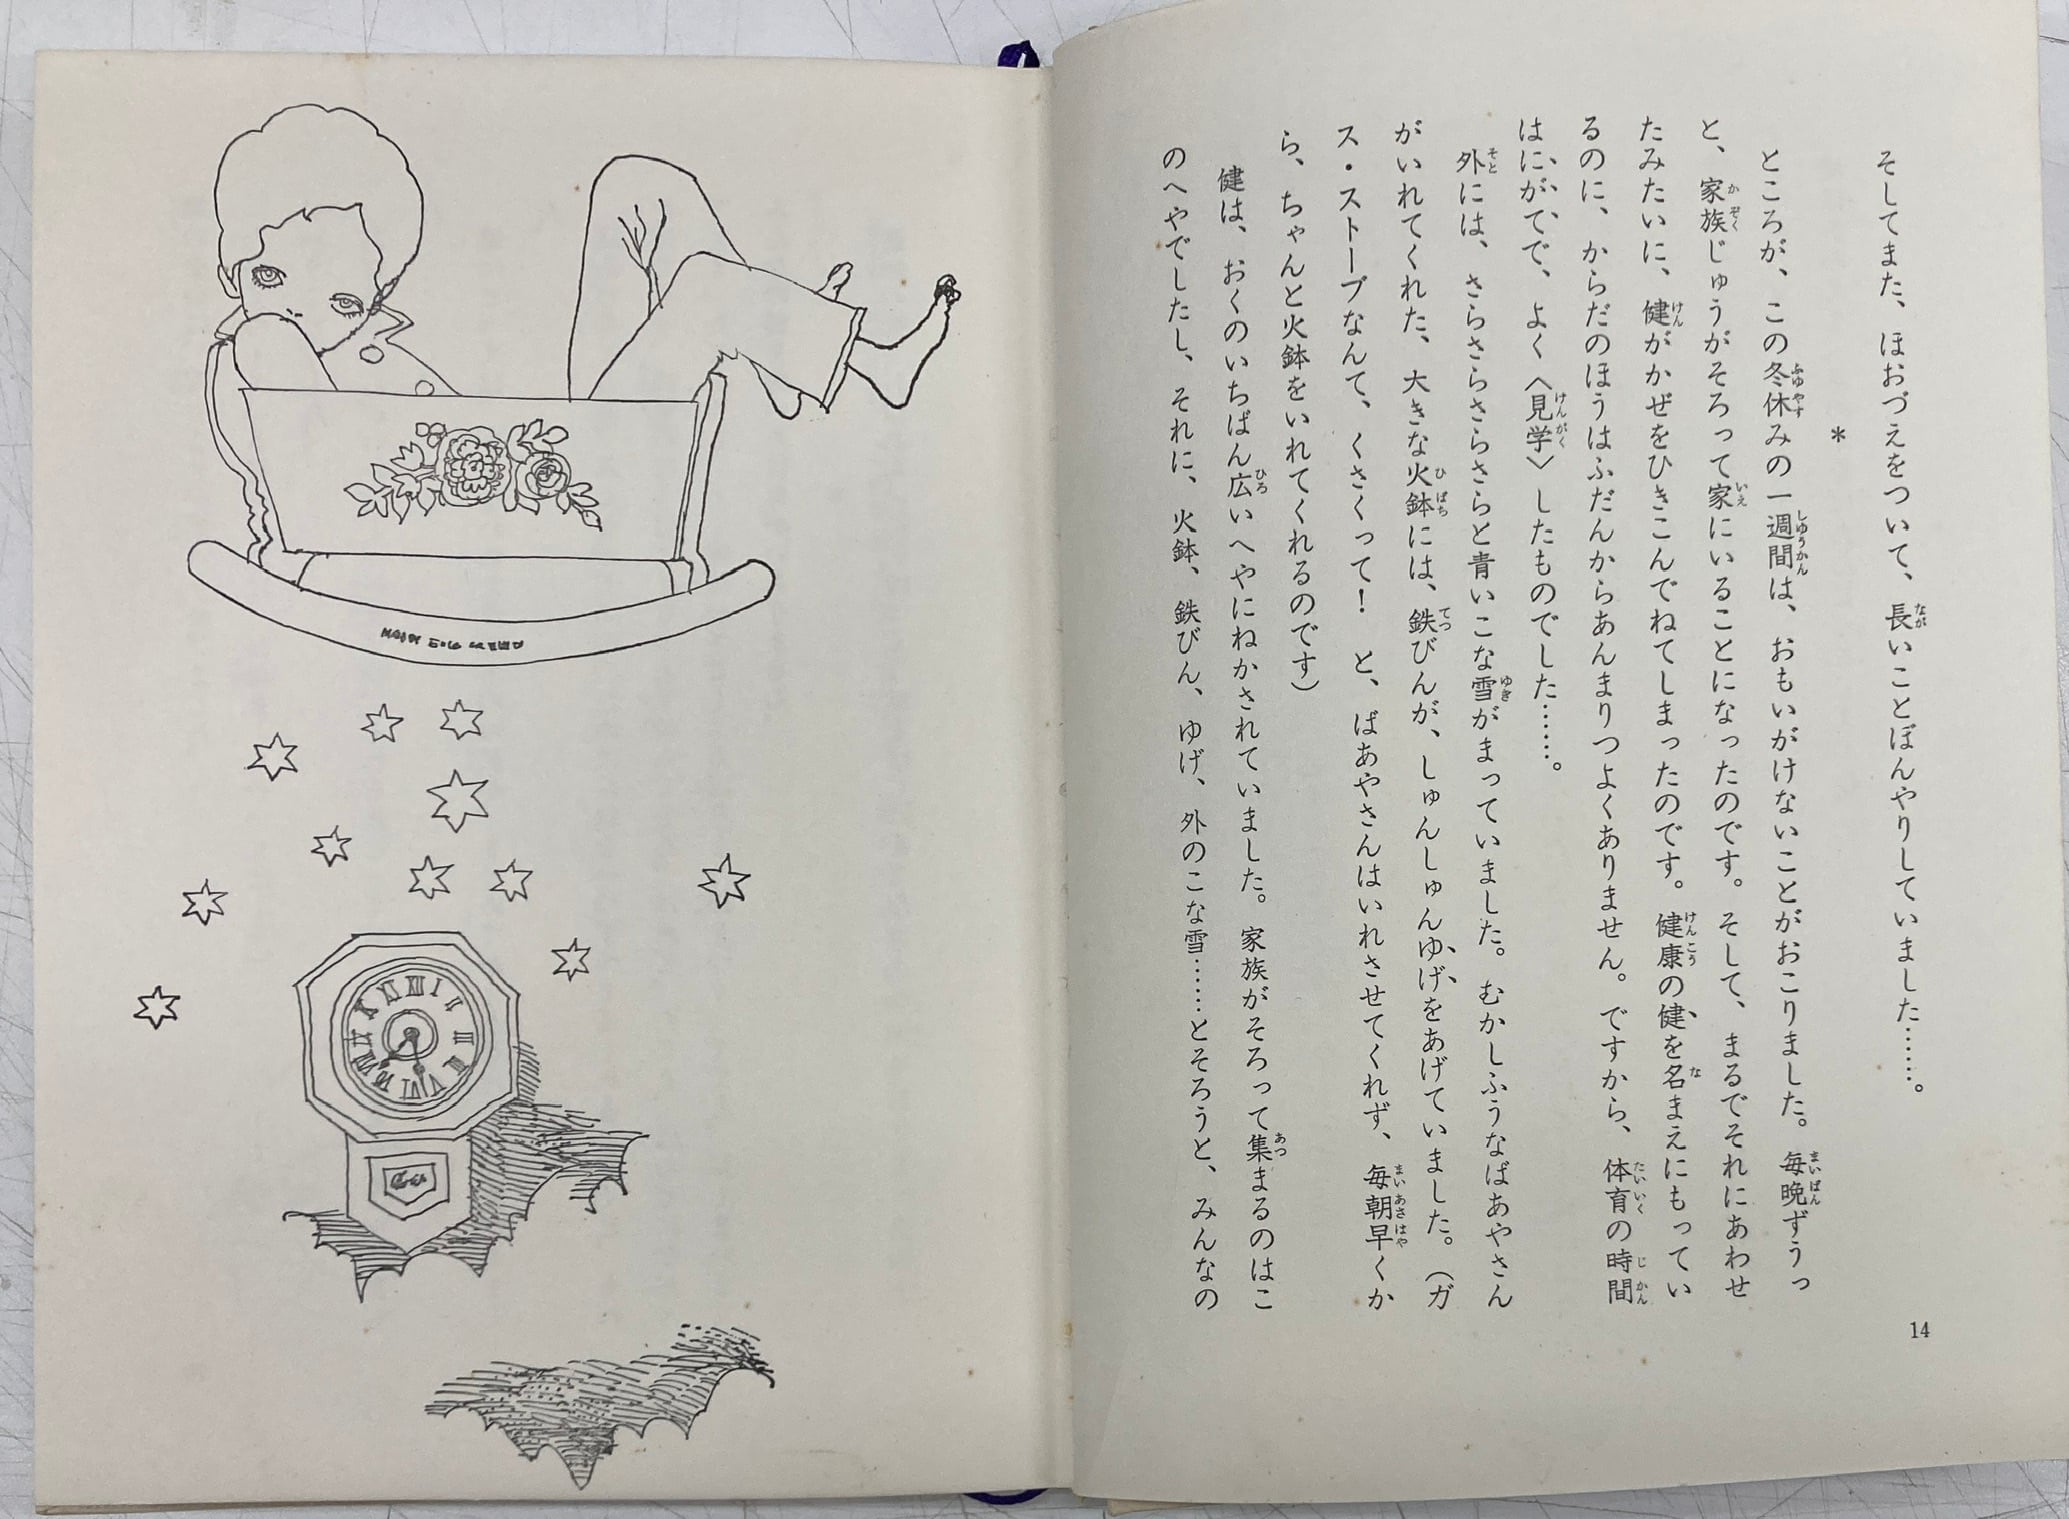 そしてまた、ほおづえをついて、長いことぼんやりしていました……。
＊
ところが、この冬休みの一週間は、おもいがけないことがおこりました。毎晩ずうっ
と、家族じゅうがそろって家にいることになったのです。そして、まるでそれにあわせ
たみたいに、健がかぜをひきこんでねてしまったのです。健康の健を名まえにもってい
るのに、からだのほうはふだんからあんまりつよくありません。ですから、体育の時間
はにがてで、よく〈見学〉したものでした……。
外には、さらさらさらさらと青いこな雪がまっていました。むかしふうなばあやさん
がいれてくれた、大きな火鉢には、鉄びんが、しゅんしゅんゆげをあげていました。（ガ
ス・ストーブなんて、くさくって！　と、ばあやさんはいれさせてくれず、毎朝早くか
ら、ちゃんと火鉢をいれてくれるのです）
健は、おくのいちばん広いへやにねかされていました。家族がそろって集まるのはこ
のへやでしたし、それに、火鉢、鉄びん、ゆげ、外のこな雪……とそろうと、みんなの
14